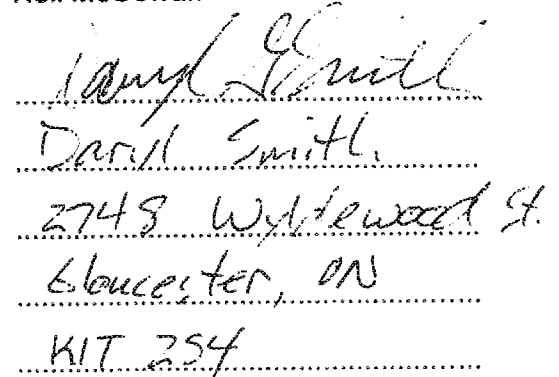 Daryl G Smith
Daryl Smith
2748 Wyldewood St.
Gloucester, ON
K1T 2S4